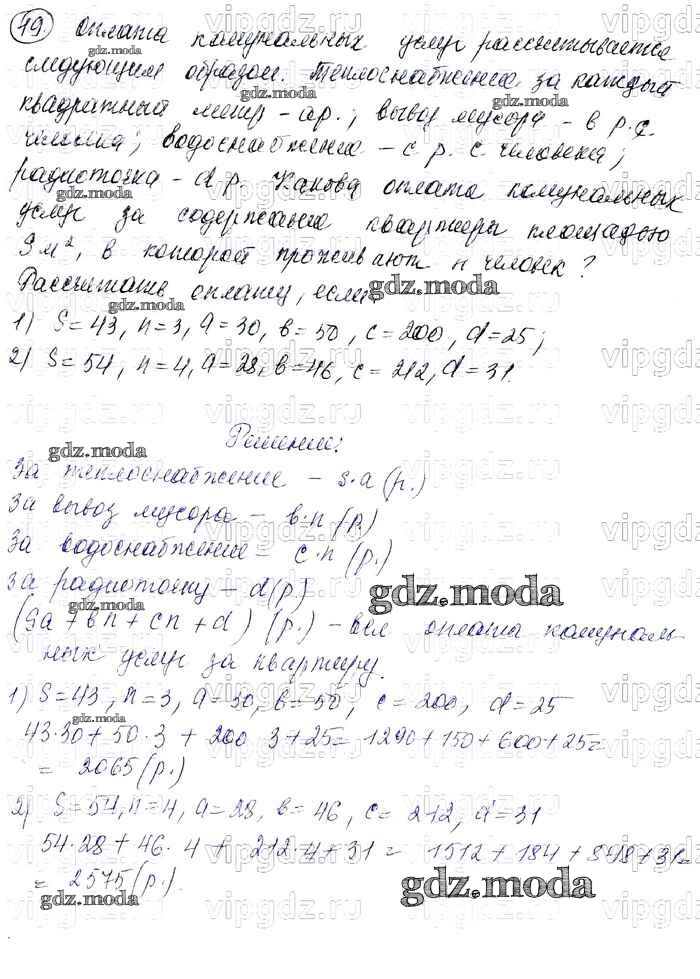 19. Оплата комунальных услуг рассчитывается
следующим образом. Теплоснабжение за каждый
квадратный метр - a р.; вывоз мусора - в р. с
человека; водоснабжение - с р. с человека;
радиоточка - d р. Какова оплата комунальных
услуг за содержание квартиры площадью
S м², в которой проживают n человек?
Рассчитать оплату, если:
1) S=43, n=3, a=30, в=50, c=200, d=25;
2) S=54, n=4, a=28, в=46, c=212, d=31.
Решение:
За теплоснабжение - s·a (р.)
За вывоз мусора - в·n (р.)
За водоснабжение - c·n (р.)
За радиоточку - d (р)
(Sa + вn + cn + d) (р.) - вся оплата комуналь-
ных услуг за квартиру.
1) S=43, n=3, a=30, в=50, c=200, d=25
43·30 + 50·3 + 200 3 + 25 = 1290 + 150 + 600 + 25 =
= 2065 (р.)
2) S=54, n=4, a=28, в=46, c=212, d=31
54·28 + 46·4 + 212·4 + 31 = 1512 + 184 + 848 + 31 =
= 2575 (р.).
gdz.moda
vipgdz.ru